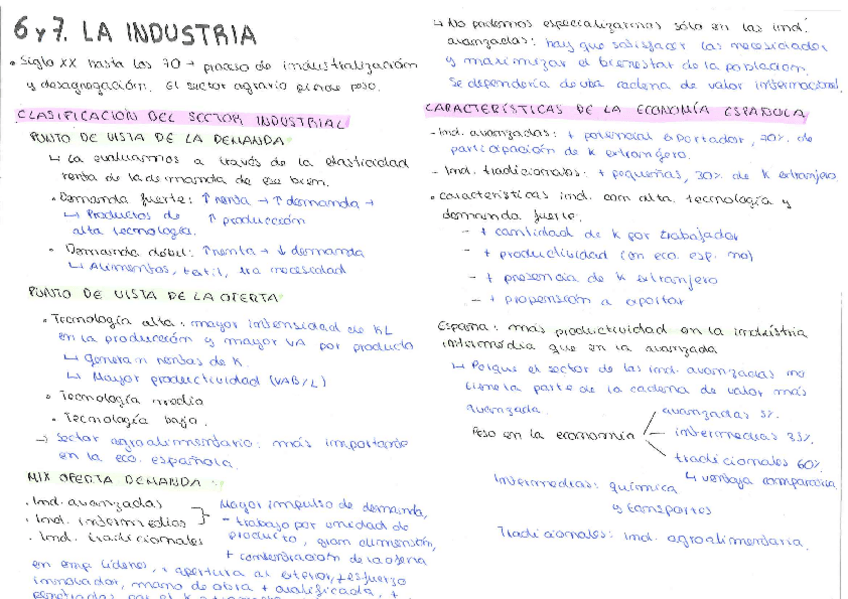 6 y 7. LA INDUSTRIA
• Siglo XX hasta los 70 → proceso de industrialización
y desagregación. El sector agrario pierde peso.
CLASIFICACIÓN DEL SECTOR INDUSTRIAL
PUNTO DE VISTA DE LA DEMANDA
↳ La evaluamos a través de la elasticidad
renta de la demanda de ese bien.
• Demanda fuerte: ↑ renta → ↑ demanda →
↳ Productos de ↑ producción
alta tecnología.
• Demanda débil: ↑ renta → ↓ demanda
↳ Alimentos, textil, 1ra necesidad
PUNTO DE VISTA DE LA OFERTA
• Tecnología alta: mayor intensidad de KL
en la producción y mayor VA por producto
↳ Generan rentas de K.
↳ Mayor productividad (VAB/L)
• Tecnología media
• Tecnología baja.
→ Sector agroalimentario: más importante
en la eco. española.
MIX OFERTA DEMANDA
• Ind. avanzadas
• Ind. intermedias
• Ind. tradicionales
Mayor impulso de demanda,
- trabajo por unidad de
producto, gran dimensión,
+ concentración de la oferta
en emp. líderes, + apertura al exterior, + esfuerzo
innovador, mano de obra + cualificada, +
↳ No podemos especializarnos sólo en las ind.
avanzadas: hay que satisfacer las necesidades
y maximizar el bienestar de la población.
Se dependería de una cadena de valor internacional.
CARACTERÍSTICAS DE LA ECONOMÍA ESPAÑOLA
- Ind. avanzadas: + potencial exportador, 70% de
participación de K extranjero.
- Ind. tradicionales: + pequeñas, 30% de K extranjero
• Características ind. con alta tecnología y
demanda fuerte.
- + cantidad de K por trabajador
- + productividad (en eco. esp. no)
- + presencia de K extranjero
- + propensión a exportar
España: más productividad en la industria
intermedia que en la avanzada
↳ Porque el sector de las ind. avanzadas no
tiene la parte de la cadena de valor más
avanzada.
Peso en la economía
avanzadas 5%.
intermedias 35%.
tradicionales 60%
↳ ventaja comparativa
Intermedias: química
y transportes
Tradicionales: ind. agroalimentaria.